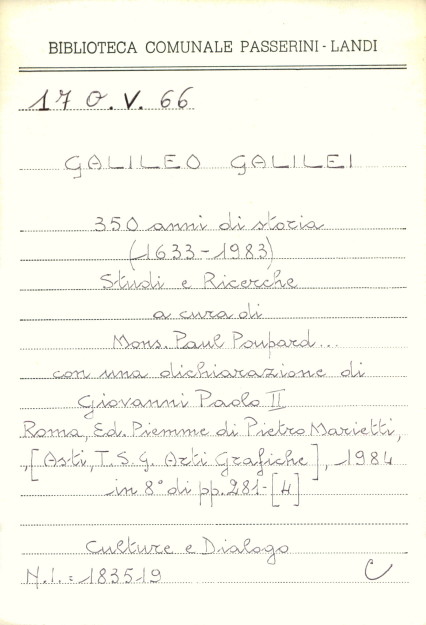 BIBLIOTECA COMUNALE PASSERINI - LANDI
17 O. V. 66
GALILEO GALILEI
350 anni di storia
(1633-1983)
Studi e Ricerche
a cura di
Mons. Paul Poupard...
con una dichiarazione di
Giovanni Paolo II
Roma, Ed. Piemme di Pietro Marietti,
,[Asti, T.S.G. Arti Grafiche], 1984
in 8° di pp. 281-[4]
Culture e Dialogo
N.I.: 183519 C